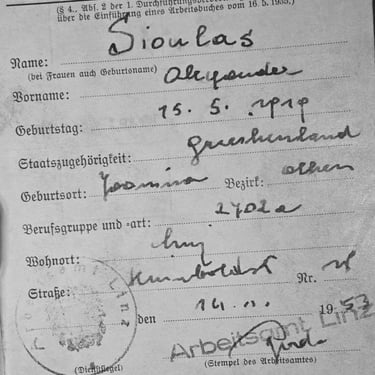 (§ 4., Abs. 2 der 1. Durchführungsverordnung
über die Einführung eines Arbeitsbuches vom 16. 5. 1935.)
Name: Sioulas
(bei Frauen auch Geburtsname)
Vorname: Alexander
Geburtstag: 15. 5. 1919
Staatszugehörigkeit: Griechenland
Geburtsort: Joanina Bezirk: Athen
Berufsgruppe und -art: 2702a
Wohnort: Linz
Straße: Humboldtst Nr.
den 14. 19 53
Arbeitsamt Linz
(Dienstsiegel) (Stempel des Arbeitsamtes)